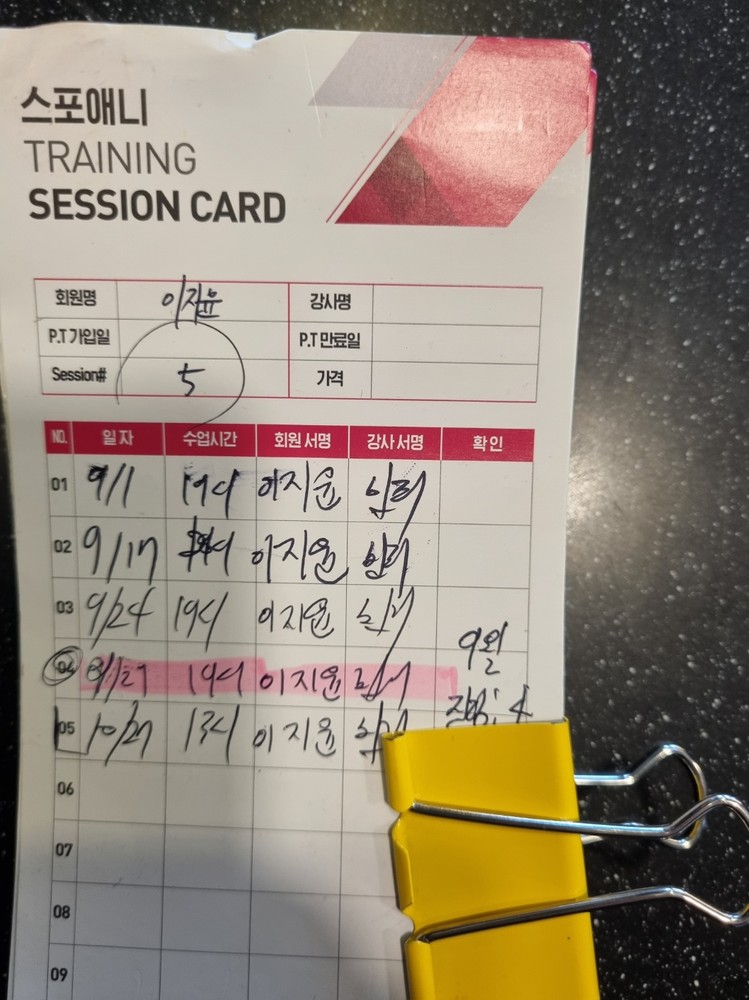 스포애니
TRAINING
SESSION CARD
회원명 이지윤 강사명
P.T 가입일 P.T 만료일
Session# 5 가격
NO. 일자 수업시간 회원 서명 강사 서명 확인
01 9/1 19시 이지윤
02 9/17 이지윤
03 9/24 19시 이지윤
9월
04 9/27 19시 이지윤
05 10/27 13시 이지윤
06
07
08
09